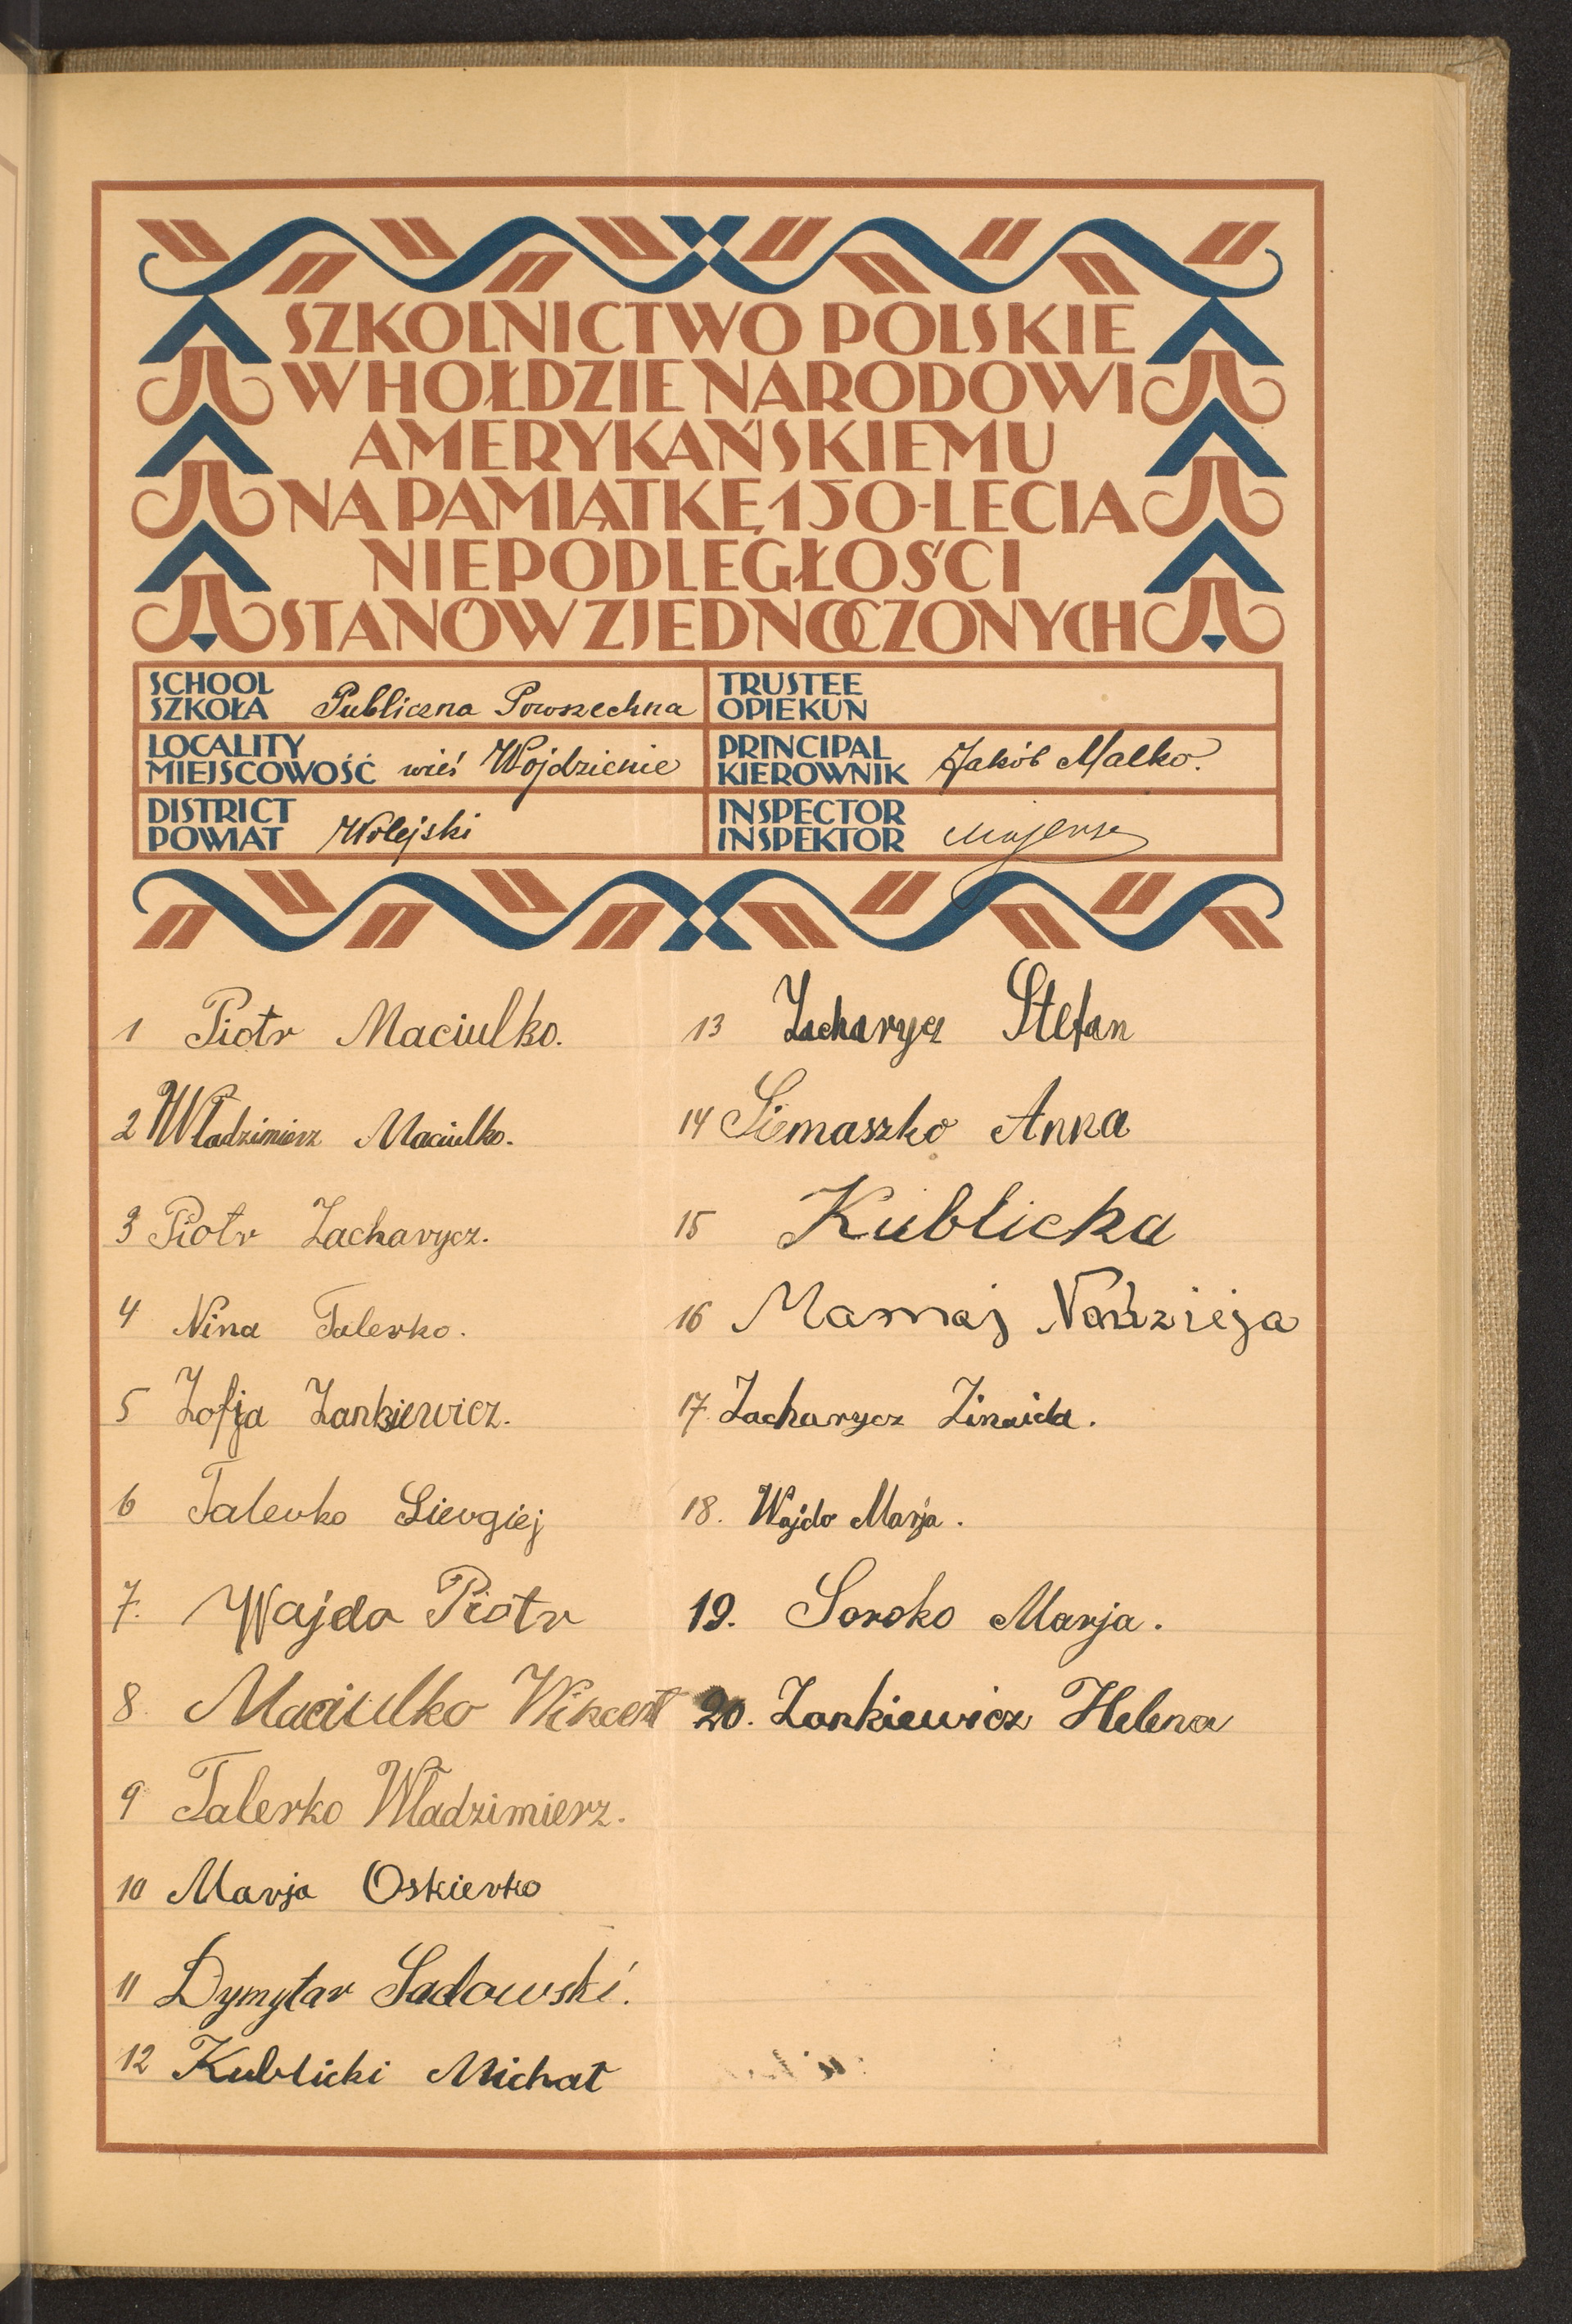 SZKOLNICTWO POLSKIE
W HOŁDZIE NARODOWI
AMERYKAŃSKIEMU
NA PAMIĄTKĘ 150-LECIA
NIEPODLEGŁOŚCI
STANÓW ZJEDNOCZONYCH
SCHOOL
SZKOŁA Publiczna Powszechna
TRUSTEE
OPIEKUN
LOCALITY
MIEJSCOWOŚĆ wieś Wojdzienie
PRINCIPAL
KIEROWNIK Jakób Małko.
DISTRICT
POWIAT Wilejski
INSPECTOR
INSPEKTOR
1 Piotr Maciulko.
2 Władzimierz Maciulko.
3 Piotr Zacharycz.
4 Nina Talerko.
5 Zofja Zankiewicz.
6 Talerko Siergiej
7. Wajdo Piotr
8. Maciulko Wincent
9 Talerko Władzimierz.
10 Marja Oskierko
11 Dymytar Sadowski.
12 Kublicki Michał
13 Zacharycz Stefan
14 Siemaszko Anna
15 Kublicka
16 Mamaj Nadzieja
17. Zacharycz Zinaida.
18. Wajdo Marja.
19. Soroko Marja.
20. Zankiewicz Helena